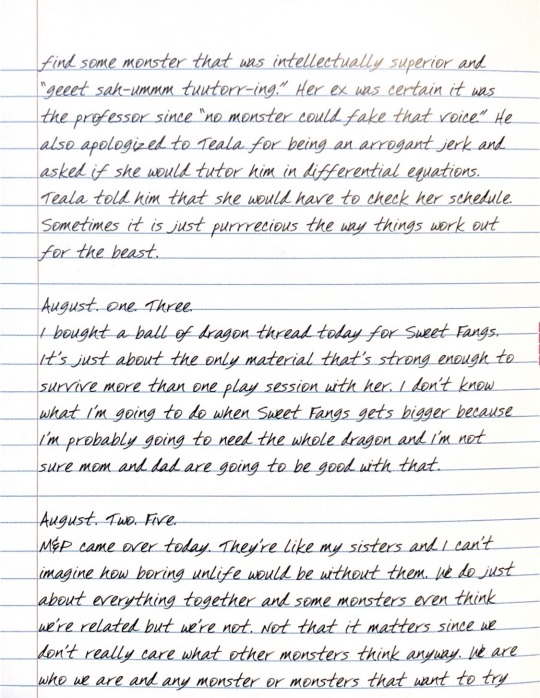 find some monster that was intellectually superior and
"geeet sah-ummm tuutorr-ing." Her ex was certain it was
the professor since "no monster could fake that voice." He
also apologized to Teala for being an arrogant jerk and
asked if she would tutor him in differential equations.
Teala told him that she would have to check her schedule.
Sometimes it is just purrrecious the way things work out
for the beast.
August. One. Three.
I bought a ball of dragon thread today for Sweet Fangs.
It's just about the only material that's strong enough to
survive more than one play session with her. I don't know
what I'm going to do when Sweet Fangs gets bigger because
I'm probably going to need the whole dragon and I'm not
sure mom and dad are going to be good with that.
August. Two. Five.
M&P came over today. They're like my sisters and I can't
imagine how boring unlife would be without them. We do just
about everything together and some monsters even think
we're related but we're not. Not that it matters since we
don't really care what other monsters think anyway. We are
who we are and any monster or monsters that want to try